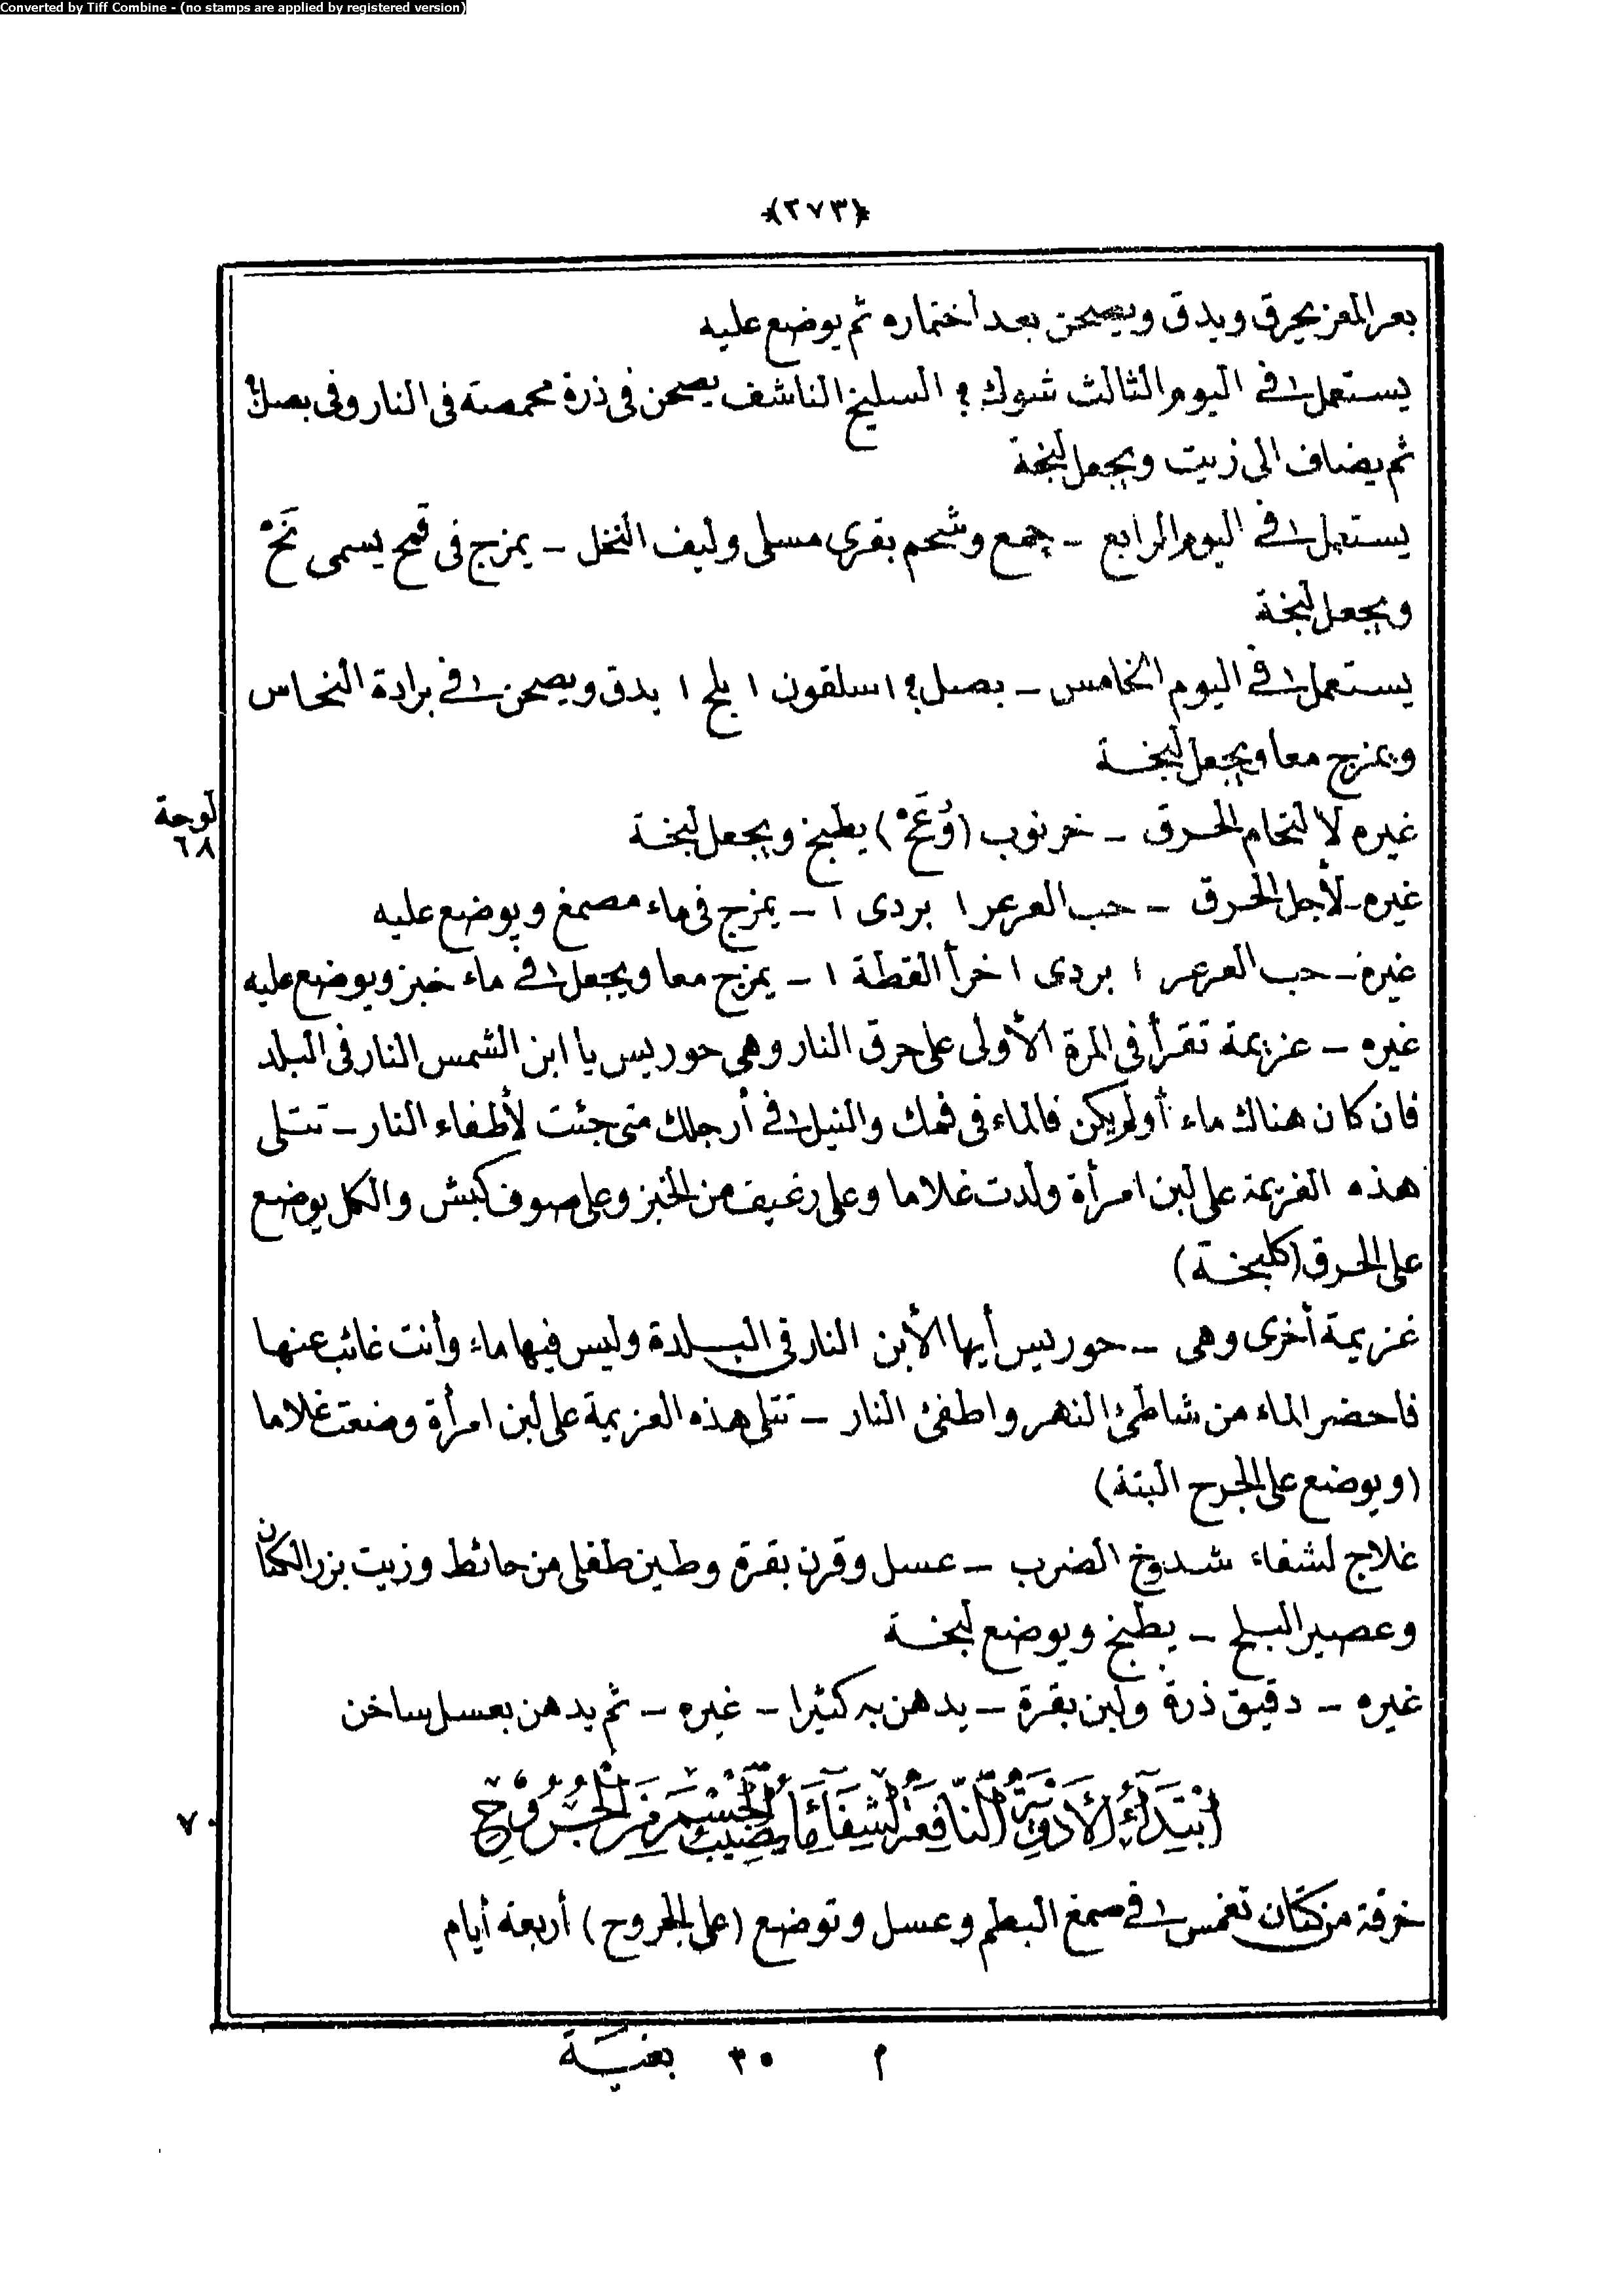 Converted by Tiff Combine - (no stamps are applied by registered version)
﴿٢٧٣﴾
بعر المعز يحرق ويدق ويصحن بعد اختماره ثم يوضع عليه
يستعمل فى اليوم الثالث شوك ؟ السليخ الناشف يصحن فى ذرة محمصة فى النار وفى بصل ؟
ثم يضاف الى زيت ويجعل لبخة
يستعمل فى اليوم الرابع - جمع وشحم بقرى مسلى وليف النخل - يمزج فى قمح يسمى نَحْ
ويجعل لبخة
يستعمل فى اليوم الخامس - بصل ؟ ١ سلقون ١ بلح ١ يدق ويصحن فى برادة النحاس
ويمزج معا ويجعل لبخة
غيره لالتحام الحرق - خرنوب (وُعَحْ) يطبخ ويجعل لبخة
لوحة
٦٨
غيره - لأجل الحرق - حب العرعر ١ بردى ١ - يمزج فى ماء مصمغ ويوضع عليه
غيره - حب العرعر ١ بردى ١ خرأ القطة ١ - يمزج معا ويجعل فى ماء خبز ويوضع عليه
غيره - عزيمة تقرأ فى المرة الأولى على حرق النار وهى حوريس يا ابن الشمس النار فى البلد
فان كان هناك ماء أو لم يكن فالماء فى فمك والنيل فى أرجلك متى جئت لأطفاء النار - تتلى
هذه العزيمة على لبن امرأة ولدت غلاما وعلى رغيف من الخبز وعلى صوف كبش والكل يوضع
على الحرق (كلبخة)
عزيمة أخرى وهى - حوريس أيها الأبن النار فى البلدة وليس فيها ماء وأنت غائب عنها
فاحضر الماء من شاطئ النهر واطفئ النار - تتلى هذه العزيمة على لبن امرأة وضعت غلاما
(ويوضع على الجرح البتة)
علاج لشفاء شدوخ الضرب - عسل وقرن بقرة وطين طفلى من حائط وزيت بزر الكتان
وعصير البلح - يطبخ ويوضع لبخة
غيره - دقيق ذرة ولبن بقرة - يدهن به كثيرا - غيره - ثم يدهن بعسل ساخن
ابْتِدَاءُ الأَدْوِيَةِ النَّافِعَةِ لِشِفَاءِ مَا يُصِيبُ الجِسْمَ مِنَ الجُرُوحِ
٧٠
خرقة من كتان تغمس فى صمغ البطم وعسل وتوضع (على الجروح) أربعة أيام
م ٣٥ بغية